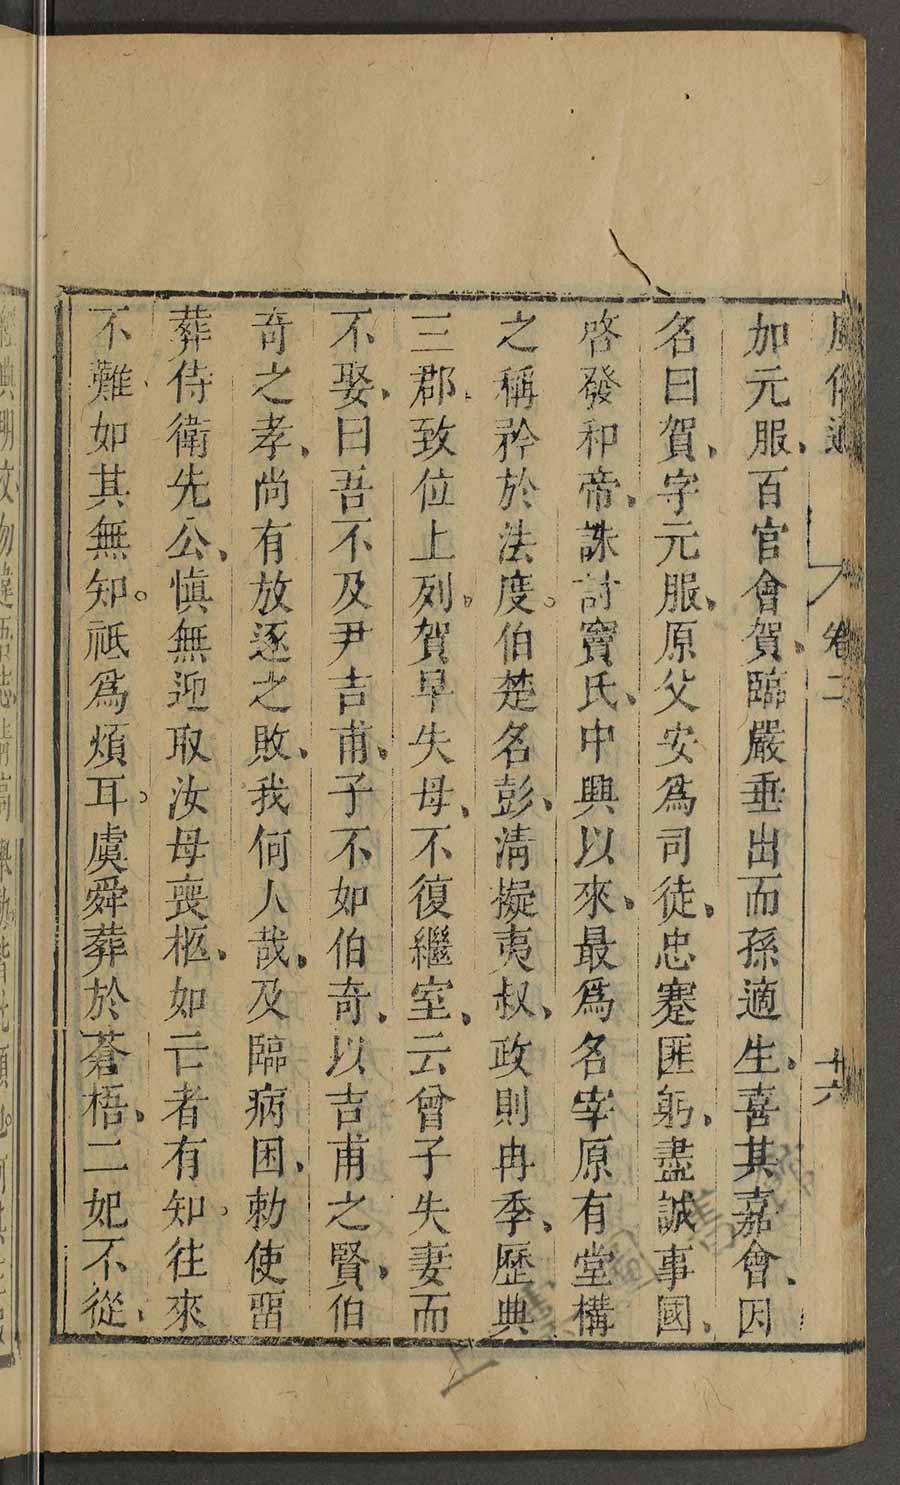 風俗通 卷二 廿六
加元服、百官會賀、臨嚴垂出而孫適生、喜其嘉會、因
名曰賀、字元服、原父安爲司徒、忠蹇匪躬、盡誠事國、
啓發和帝、誅討竇氏、中興以來、最爲名宰原有堂構
之稱矜於法度。伯楚名彭、淸擬夷叔、政則冉季、歷典
三郡、致位上列、賀早失母、不復繼室、云曾子失妻而
不娶、曰吾不及尹吉甫、子不如伯奇、以吉甫之賢、伯
奇之孝、尚有放逐之敗、我何人哉、及臨病困、勅使畱
葬侍衛先公、愼無迎取汝母喪柩、如亡者有知、往來
不難、如其無知。祗爲煩耳。虞舜葬於蒼梧、二妃不從、